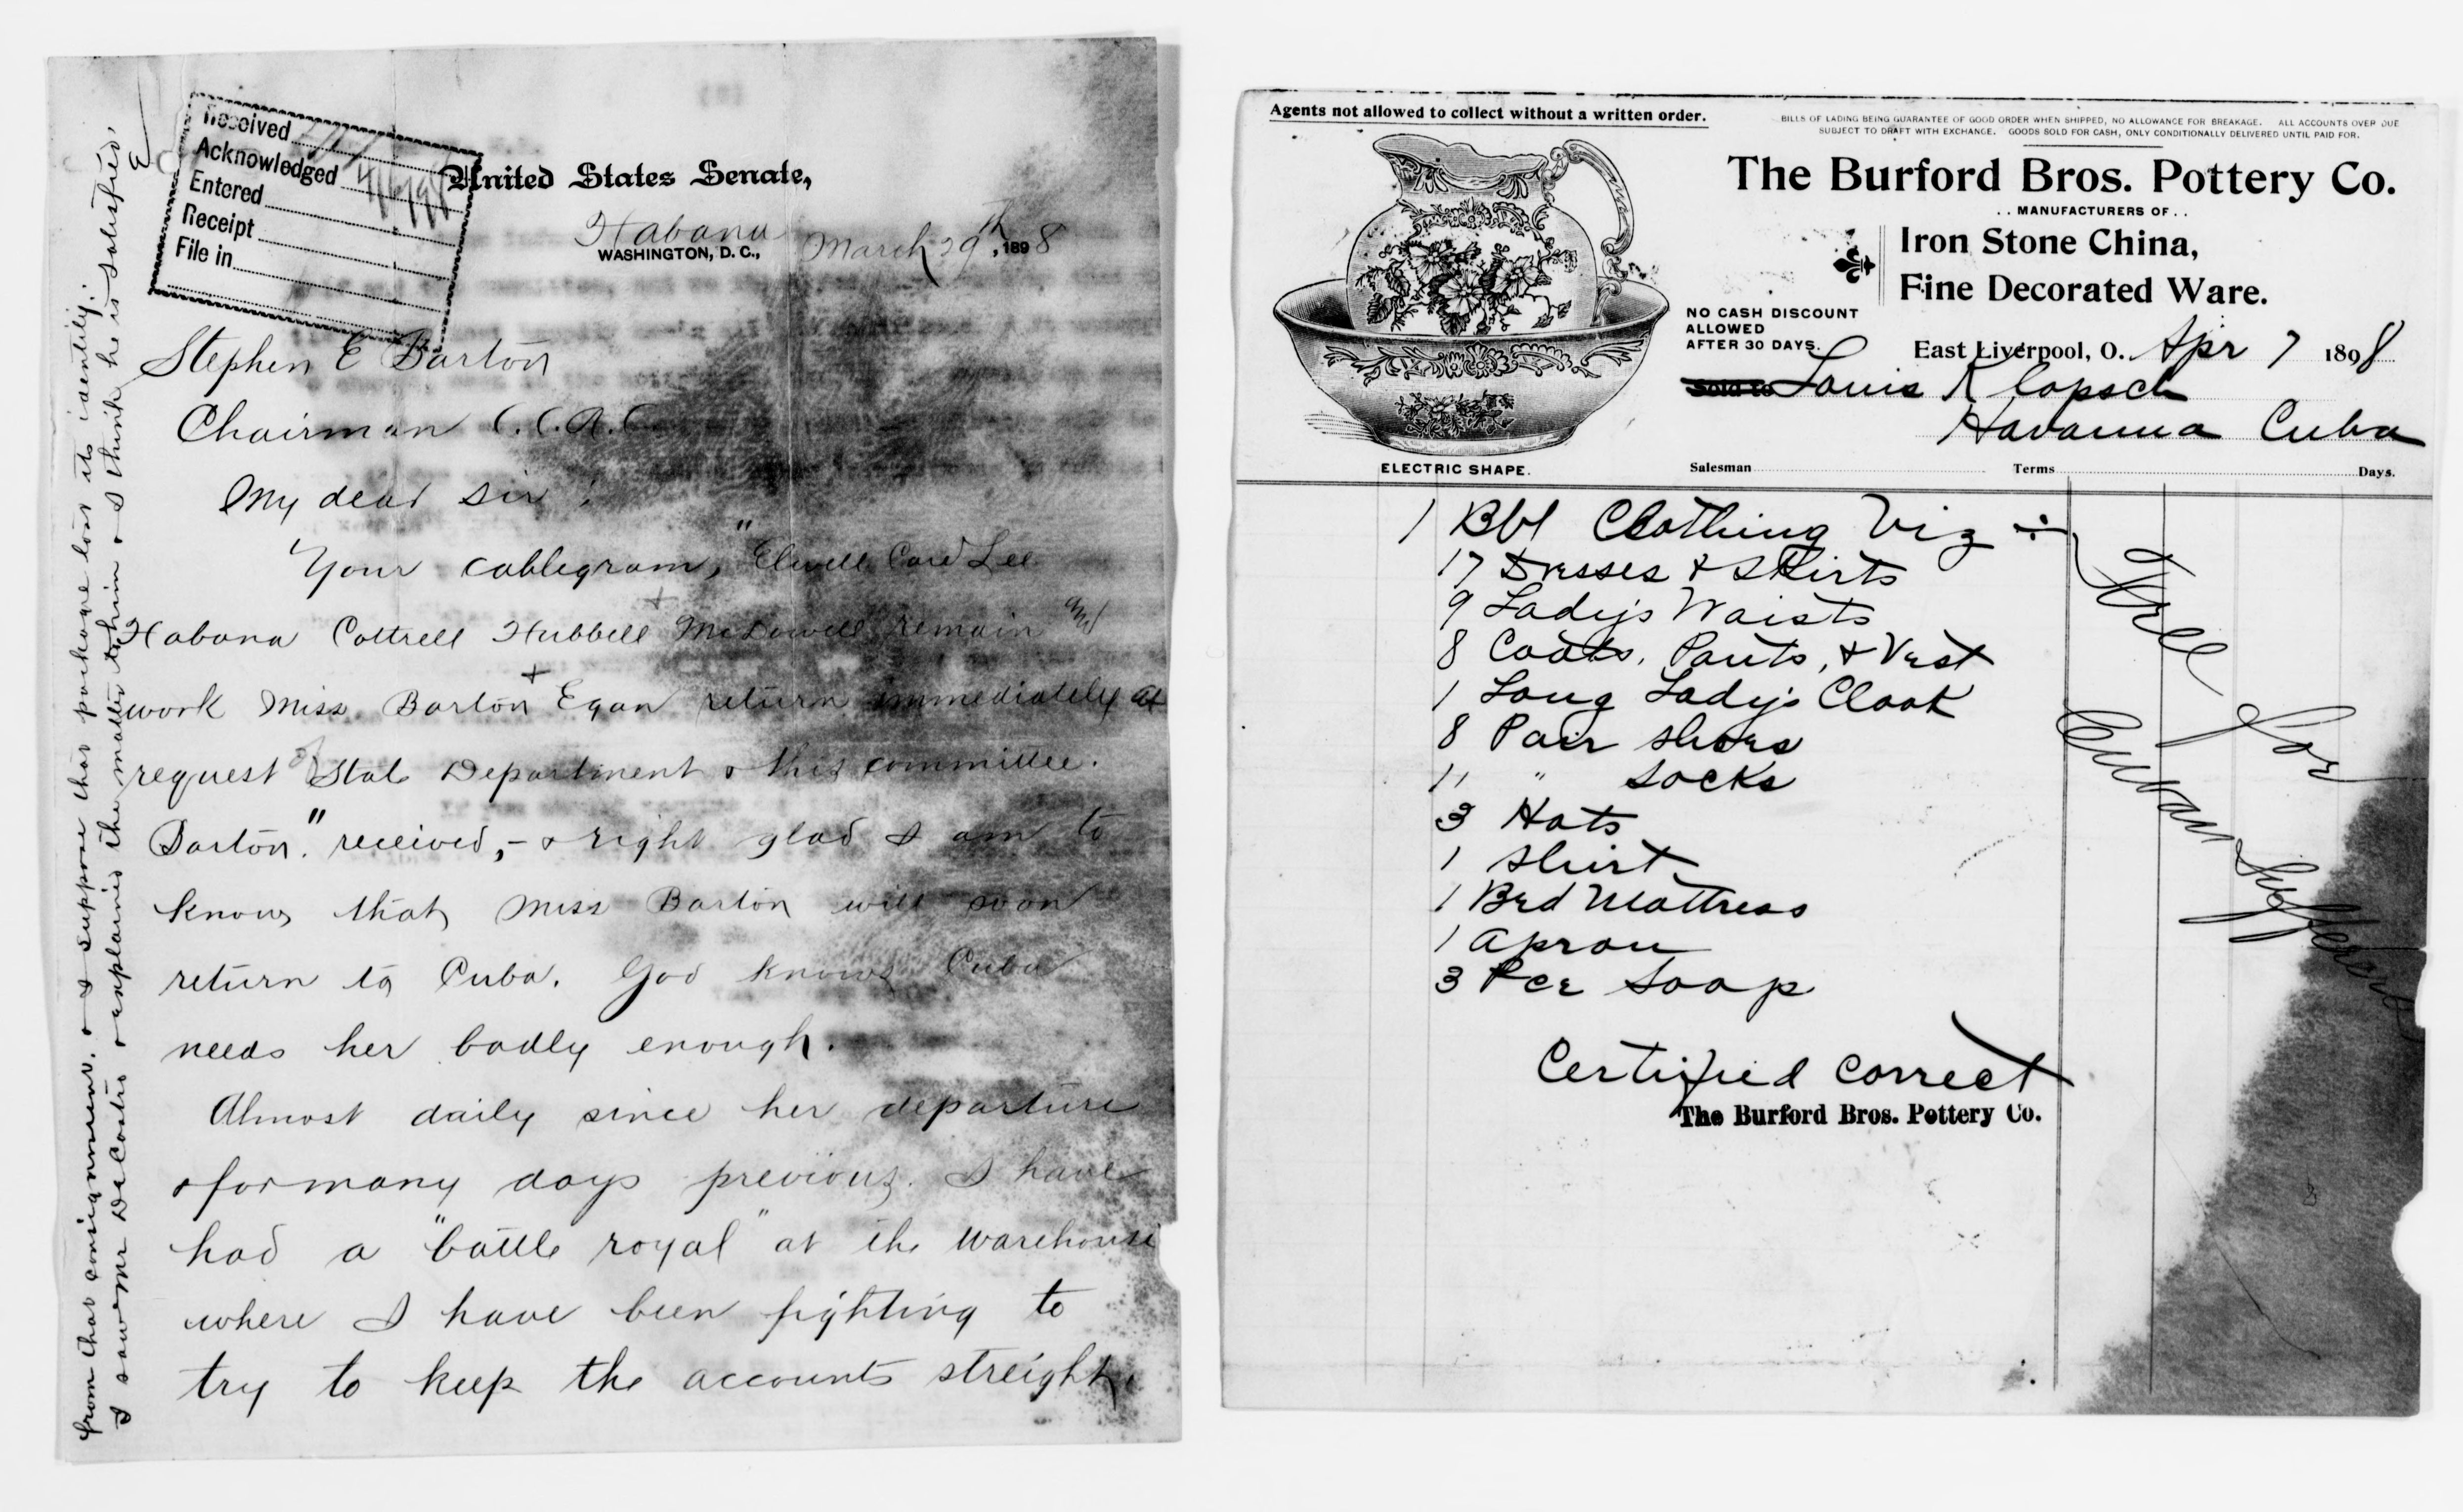 Received
Acknowledged 4/6/98
Entered
Receipt
File in
United States Senate,
Habana
WASHINGTON, D. C., March 29th, 1898
Stephen E Barton
Chairman C.C.R.C.
My dear sir:
Your cablegram, "Elwell Care Lee
Habana Cottrell Hubbell + McDowell remain and
work Miss Barton + Egan return immediately at
request of State Department & this committee.
Barton." received, - & right glad I am to
know that Miss Barton will soon
return to Cuba. God knows Cuba
needs her badly enough.
Almost daily since her departure
& for many days previous, I have
had a "battle royal" at the warehouse
where I have been fighting to
try to keep the accounts streight,
from that consignment, & I suppose that package lost its identity.
I saw Mr DeCastro & explained the matter to him & I think he is satisfied,
E
Agents not allowed to collect without a written order.
BILLS OF LADING BEING GUARANTEE OF GOOD ORDER WHEN SHIPPED, NO ALLOWANCE FOR BREAKAGE. ALL ACCOUNTS OVER DUE
SUBJECT TO DRAFT WITH EXCHANGE. GOODS SOLD FOR CASH, ONLY CONDITIONALLY DELIVERED UNTIL PAID FOR.
The Burford Bros. Pottery Co.
. . MANUFACTURERS OF . .
Iron Stone China,
Fine Decorated Ware.
NO CASH DISCOUNT
ALLOWED
AFTER 30 DAYS.
East Liverpool, O. Apr 7 1898
Sold to Louis Klopsch
Havanna Cuba
ELECTRIC SHAPE.
Salesman Terms Days.
1 Bbl Clothing Viz ÷
17 Dresses & Skirts
9 Ladys Waists
8 Coats, Pants, & Vest
1 Long Ladys Cloak
8 Pair Shoes
11 " Socks
3 Hats
1 Shirt
1 Bed Mattress
1 Apron
3 Pce Soap
Free for
Cuban Sufferers
Certified Correct
The Burford Bros. Pottery Co.